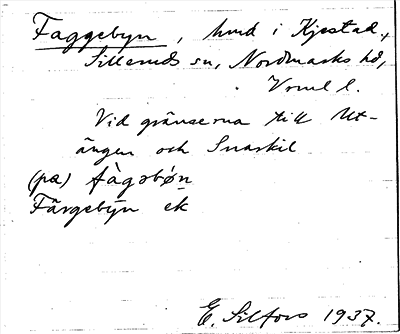 Faggebyn, hmd i Kjestad,
Silleruds sn, Nordmarks hd,
Vrml l.
Vid gränserna till Ut-
ängen och Snarkil
(på) fàgəbø̀n
Färgebyn ek
E. Silfors 1937.